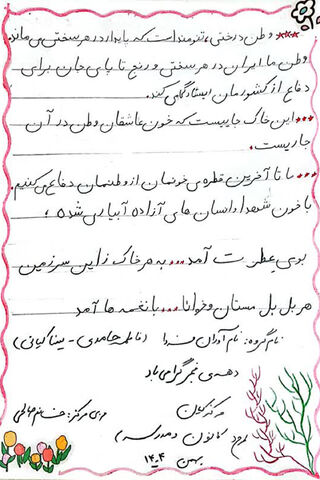 *** وطن درختی، تنومند است که پایدار در هر سختی می‌ماند.
وطن ما ایران در هر سختی و رنج تا پای جان برای
دفاع از کشورمان ایستادگی می‌کند.
*** این خاک جاییست که خون عاشقان وطن در آن
جاریست.
*** ما تا آخرین قطره‌ی خونمان از وطنمان دفاع می‌کنیم.
با خون شهدا و انسان های آزاده آبیاری شده؛
بوی عطرت آمد... به هر خاک زاین سرزمین
هر بل بل مستان و خوانا... با نغمه ها آمد
نام گروه: نام آوران فردا (فاطمه حامدی - یسنا کیانی)
دهه‌ی فجر گرامی باد
مربی مرکز: خانم صالحی
مرکز
کانون و مدرسه)
بهمن ۱۴۰۴